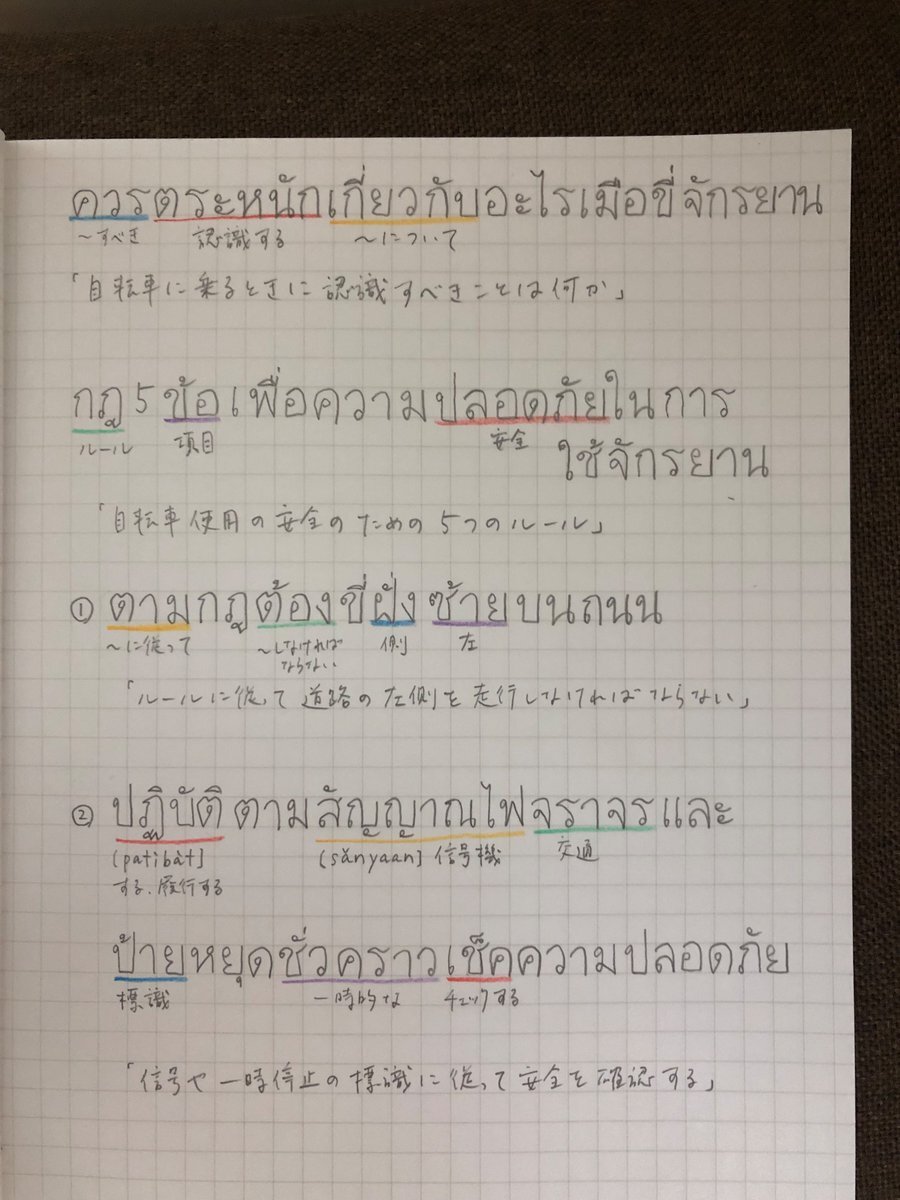 ควรตระหนักเกี่ยวกับอะไรเมือขี่จักรยาน
～すべき 認識する ～について
「自転車に乗るときに認識すべきことは何か」
กฎ 5 ข้อ เพื่อความปลอดภัยในการ
ルール 項目 安全
ใช้จักรยาน
「自転車使用の安全のための5つのルール」
① ตามกฎต้องขี่ฝั่งซ้ายบนถนน
～に従って ～しなければ 側 左
ならない
「ルールに従って道路の左側を走行しなければならない」
② ปฏิบัติ ตามสัญญาณไฟจราจรและ
[patibàt] [sǎnyaan] 信号機 交通
する、履行する
ป้ายหยุดชั่วคราวเช็คความปลอดภัย
標識 一時的な チェックする
「信号や一時停止の標識に従って安全を確認する」